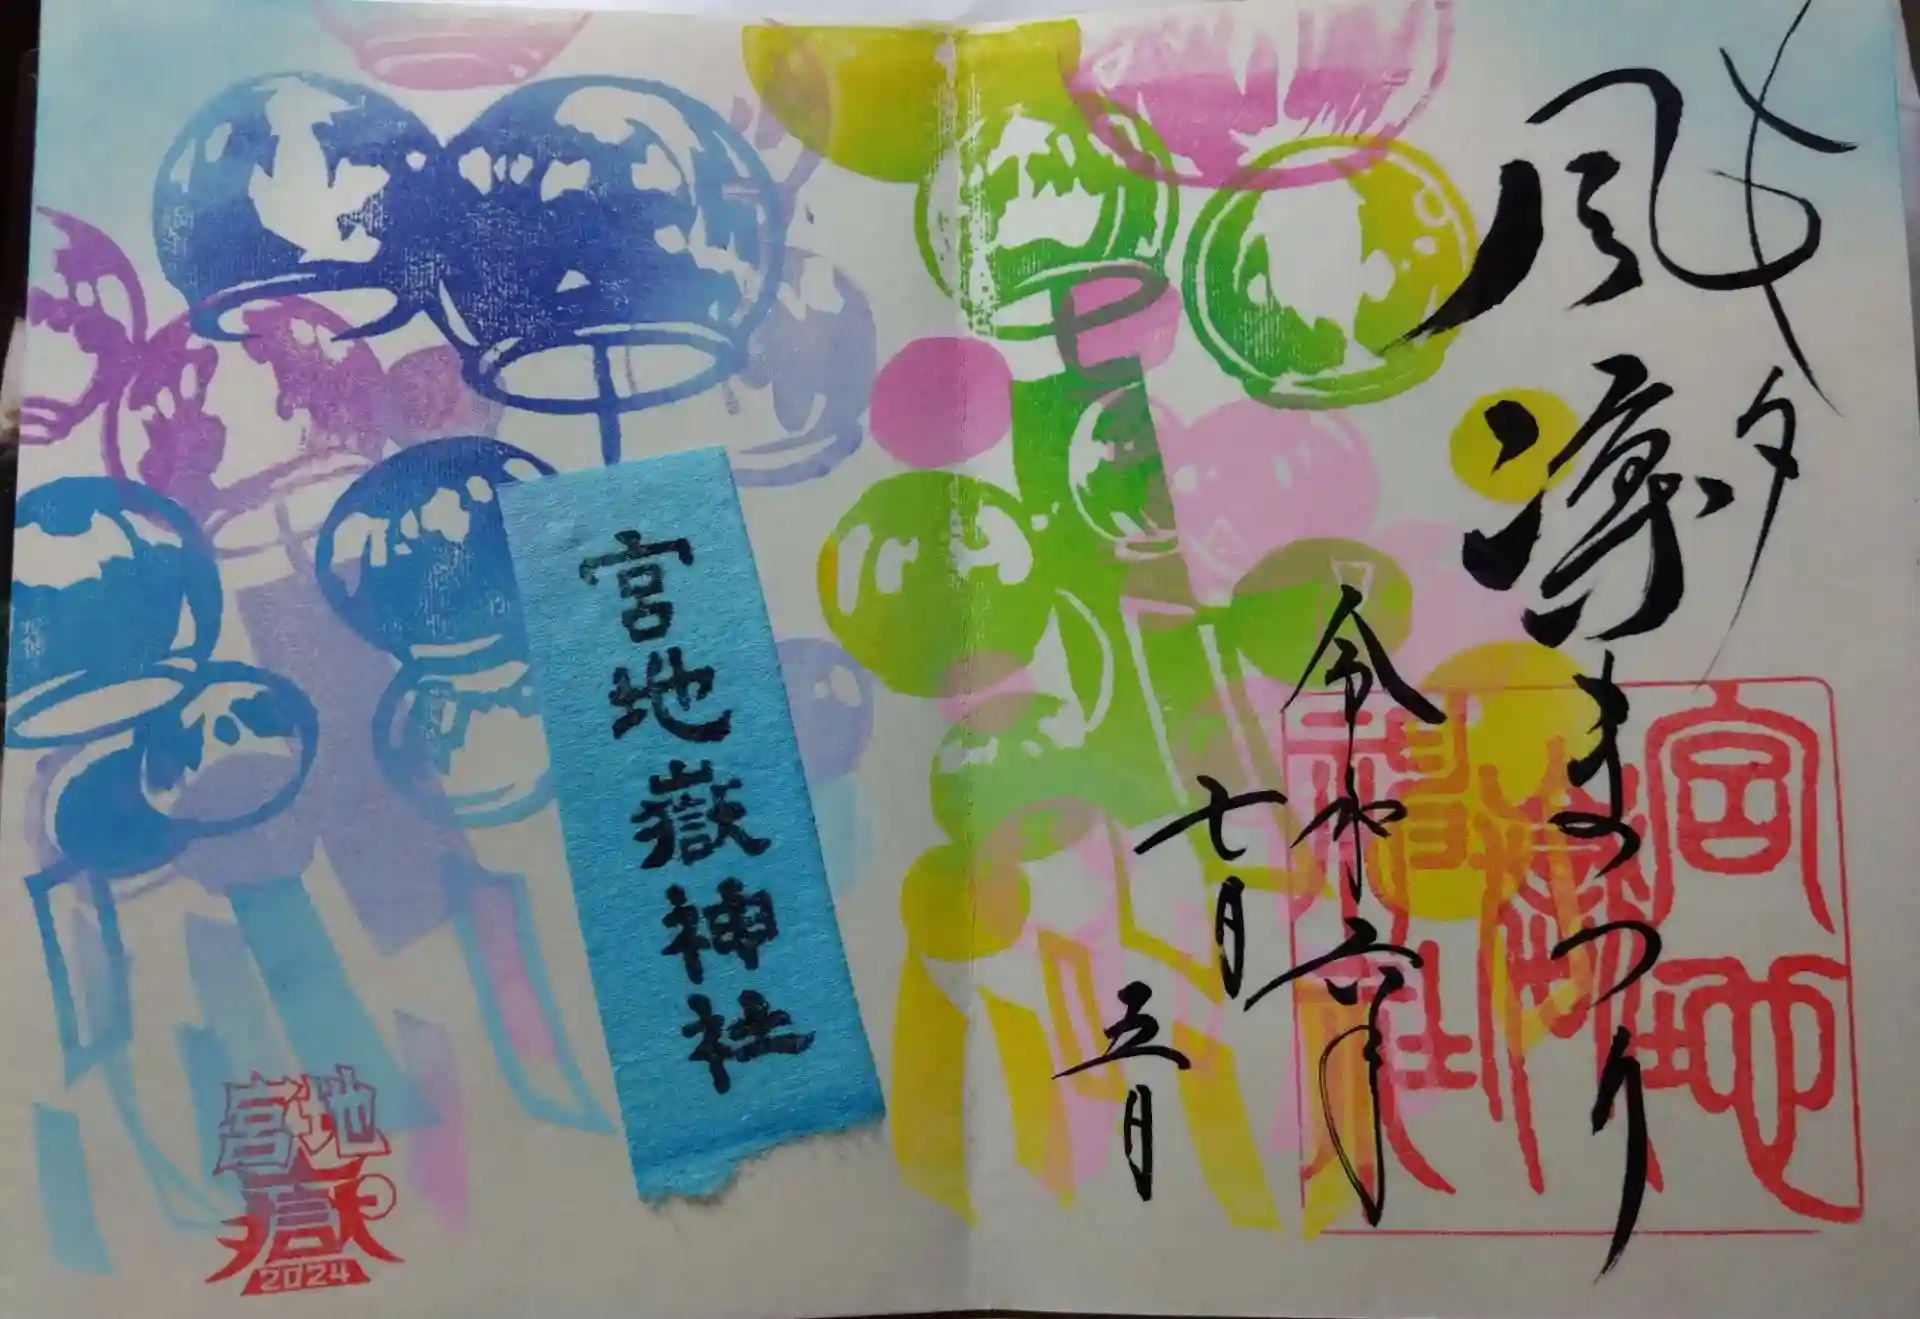 七夕
風涼まつり
令和六年
七月
五日
宮地
嶽
神社
宮地嶽神社
宮地
嶽
2024